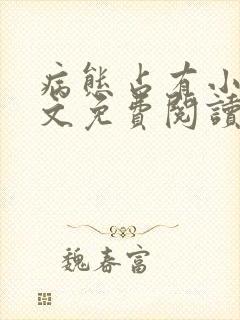 病態占有小
文免費閱讀
魏春富